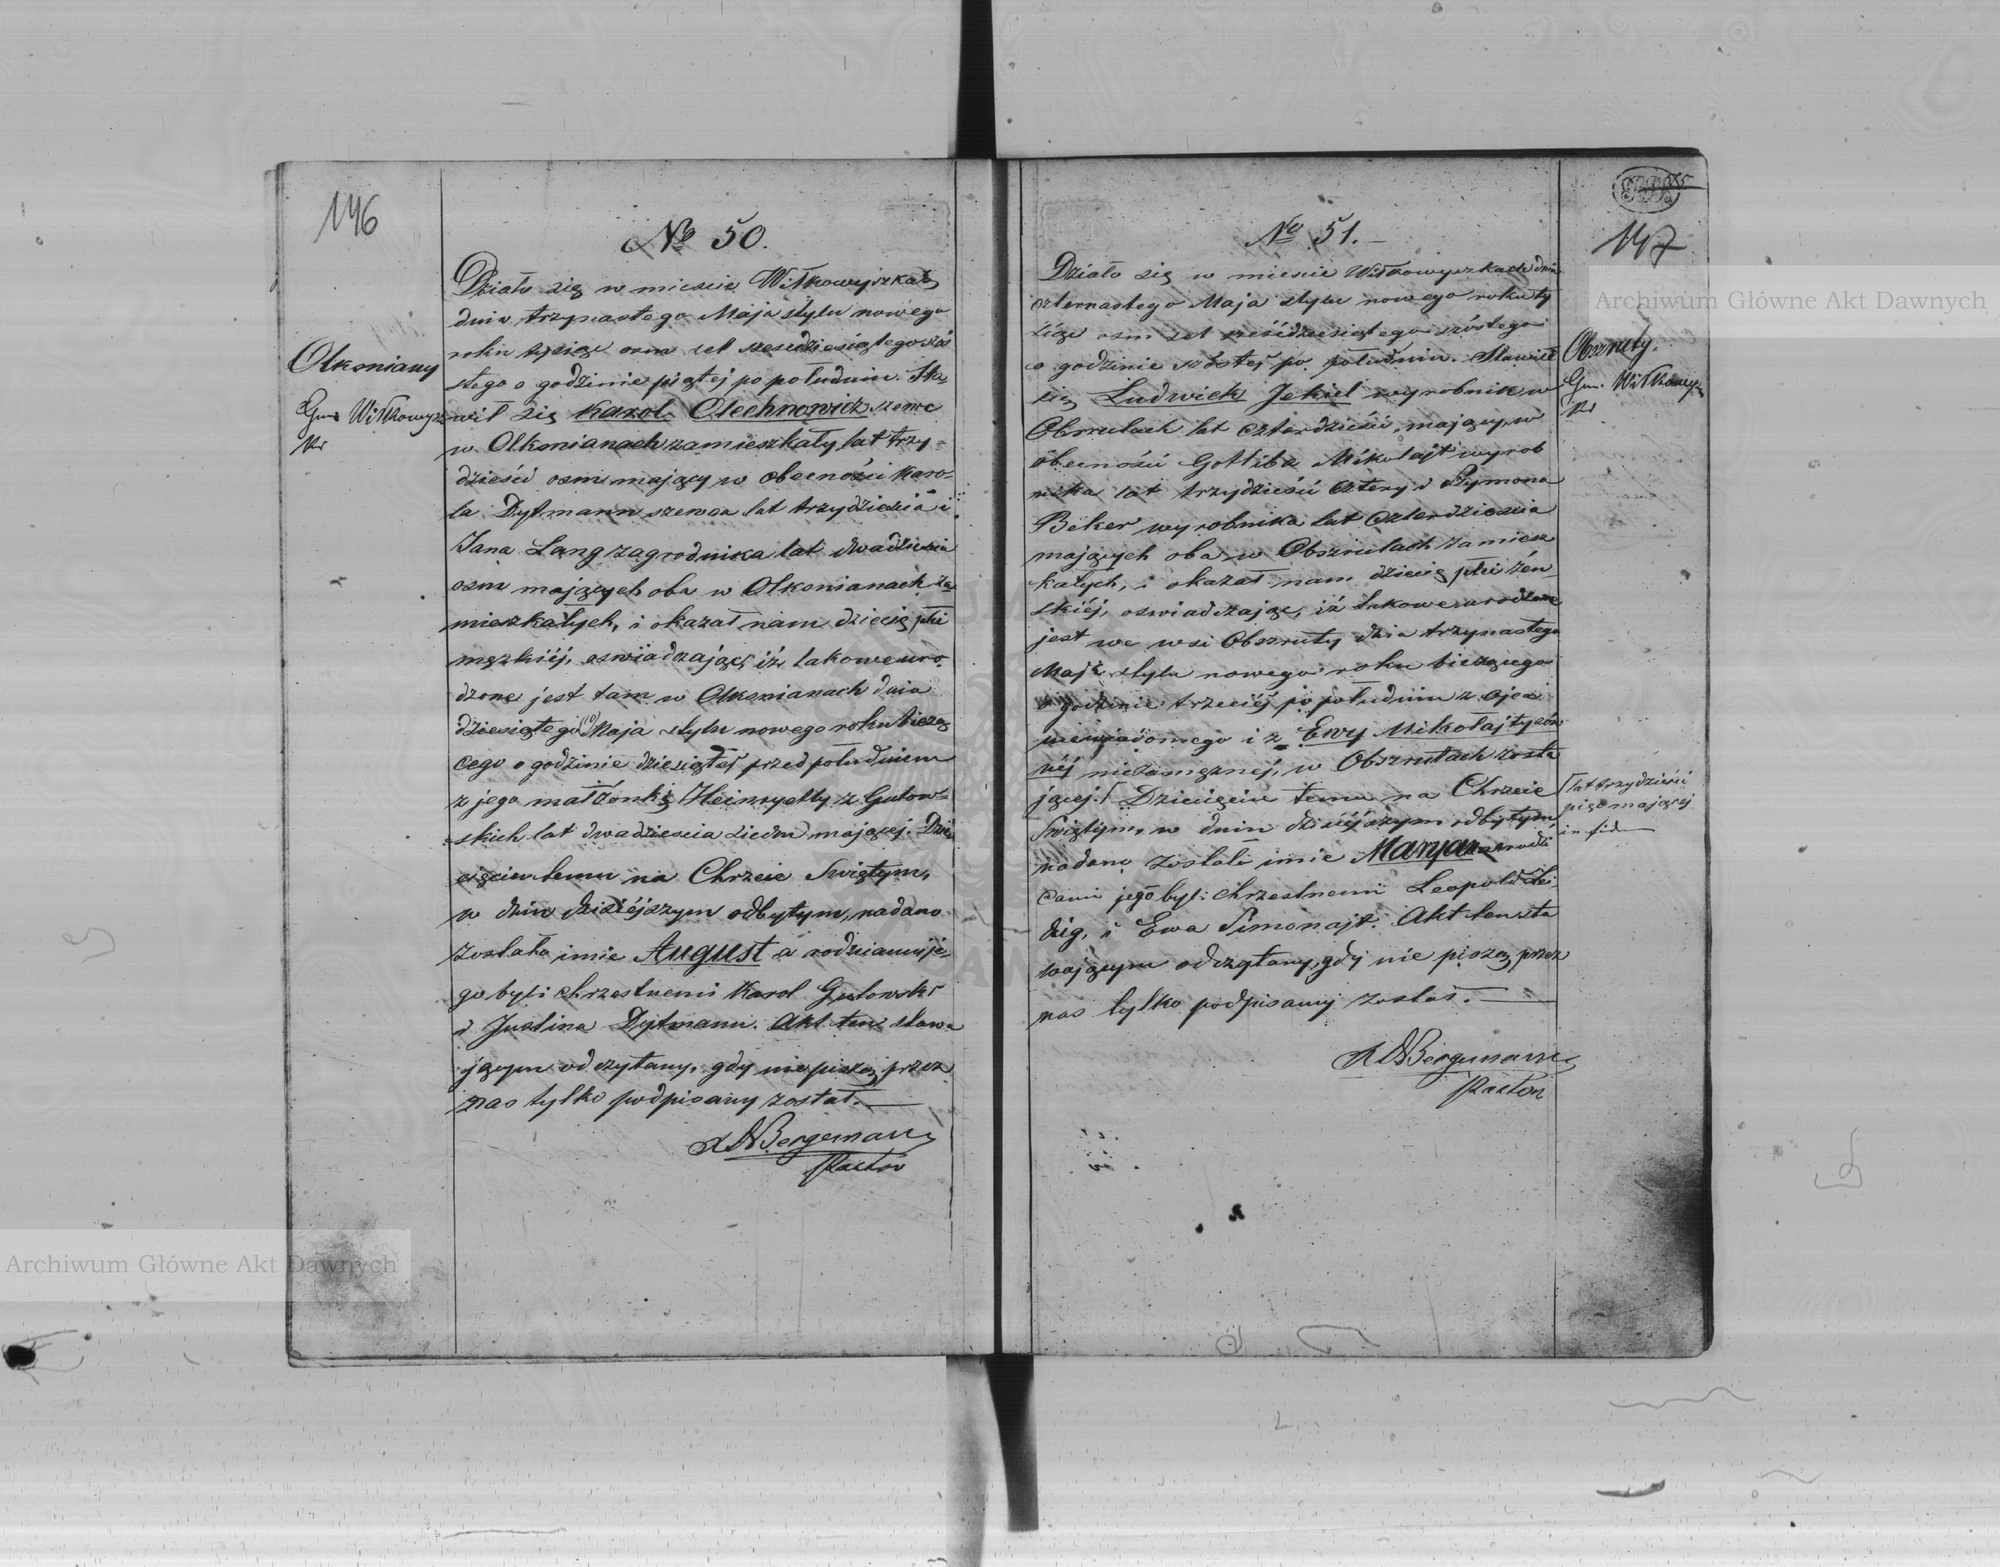 146
Nº 50.
Olkoniany
Gm. Wiłkowysz
ki
Działo się w mieście Wiłkowyszkach
dnia trzynastego Maja stylu nowego
roku tysiąc osm set sześćdziesiątego szó
stego o godzinie piątej po południu. Sta-
wił się Karol Olechnowicz szewc
w Olkonianach zamieszkały lat trzy-
dzieści osm mający w obecności Karo-
la Dytmann szewca lat trzydzieści i
Jana Lang zagrodnika lat dwadzieścia
osm mających oba w Olkonianach za
mieszkałych, i okazał nam dziecię płci
męzkiéj, oswiadczając iż takowe uro
dzone jest tam w Olkonianach dnia
dziesiątego (10) Maja stylu nowego roku bieżą
cego o godzinie dziesiątej przed południem
z jego małżonki Heinryetty z Gutow-
skich lat dwadzieścia siedm mającej. Dzie
cięciu temu na Chrzcie Swiętym,
w dniu dzisiéjszym odbytym, nadano
zostało imie August a rodzicami je-
go byli chrzestnemi Karol Gutowski
i Justina Dytmann. Akt ten stawa
jącym odczytany, gdy nie piszą, przez
nas tylko podpisany został.
Bergemann
Pastor
147
Nº 51.
Obszruty.
Gm. Wiłkowysz
ki
Działo się w mieście Wiłkowyszkach dnia
czternastego Maja stylu nowego roku ty
siąc osm set sześćdziesiątego szóstego
o godzinie szóstej po południu. Stawił
się Ludwick Jekiel wyrobnik w
Obszrutach lat czterdzieści mający, w
obecności Gotliba Mikołajt wyrob
nika lat trzydzieści cztery i Szymona
Beker wyrobnika lat czterdzieścia
mających oba w Obszrutach zamiesz
kałych, i okazał nam dziecię płci żeń
skiéj, oswiadczając, iż takowe urodzone
jest we wsi Obszruty dnia trzynastego
Maja stylu nowego roku bieżącego
o godzinie trzeciéj po południu z ojca
niewiadomego i z Ewy Mikołajtysów
néj niezamęznéj, w Obszrutach zosta
jącej. Dziecięciu temu na Chrzcie
Swiętym, w dniu dzisiéjszym odbytym
nadano zostało imie Maryanna rodzi
cami jego byli chrzestnemi Leopold Lei
dig, i Ewa Simonajt. Akt ten sta
wającym odczytany, gdy nie piszą, przez
nas tylko podpisany został.
lat trzydzieści
pięć mającej
in fid
Bergemann
Pastor
Archiwum Główne Akt Dawnych
Archiwum Główne Akt Dawnych